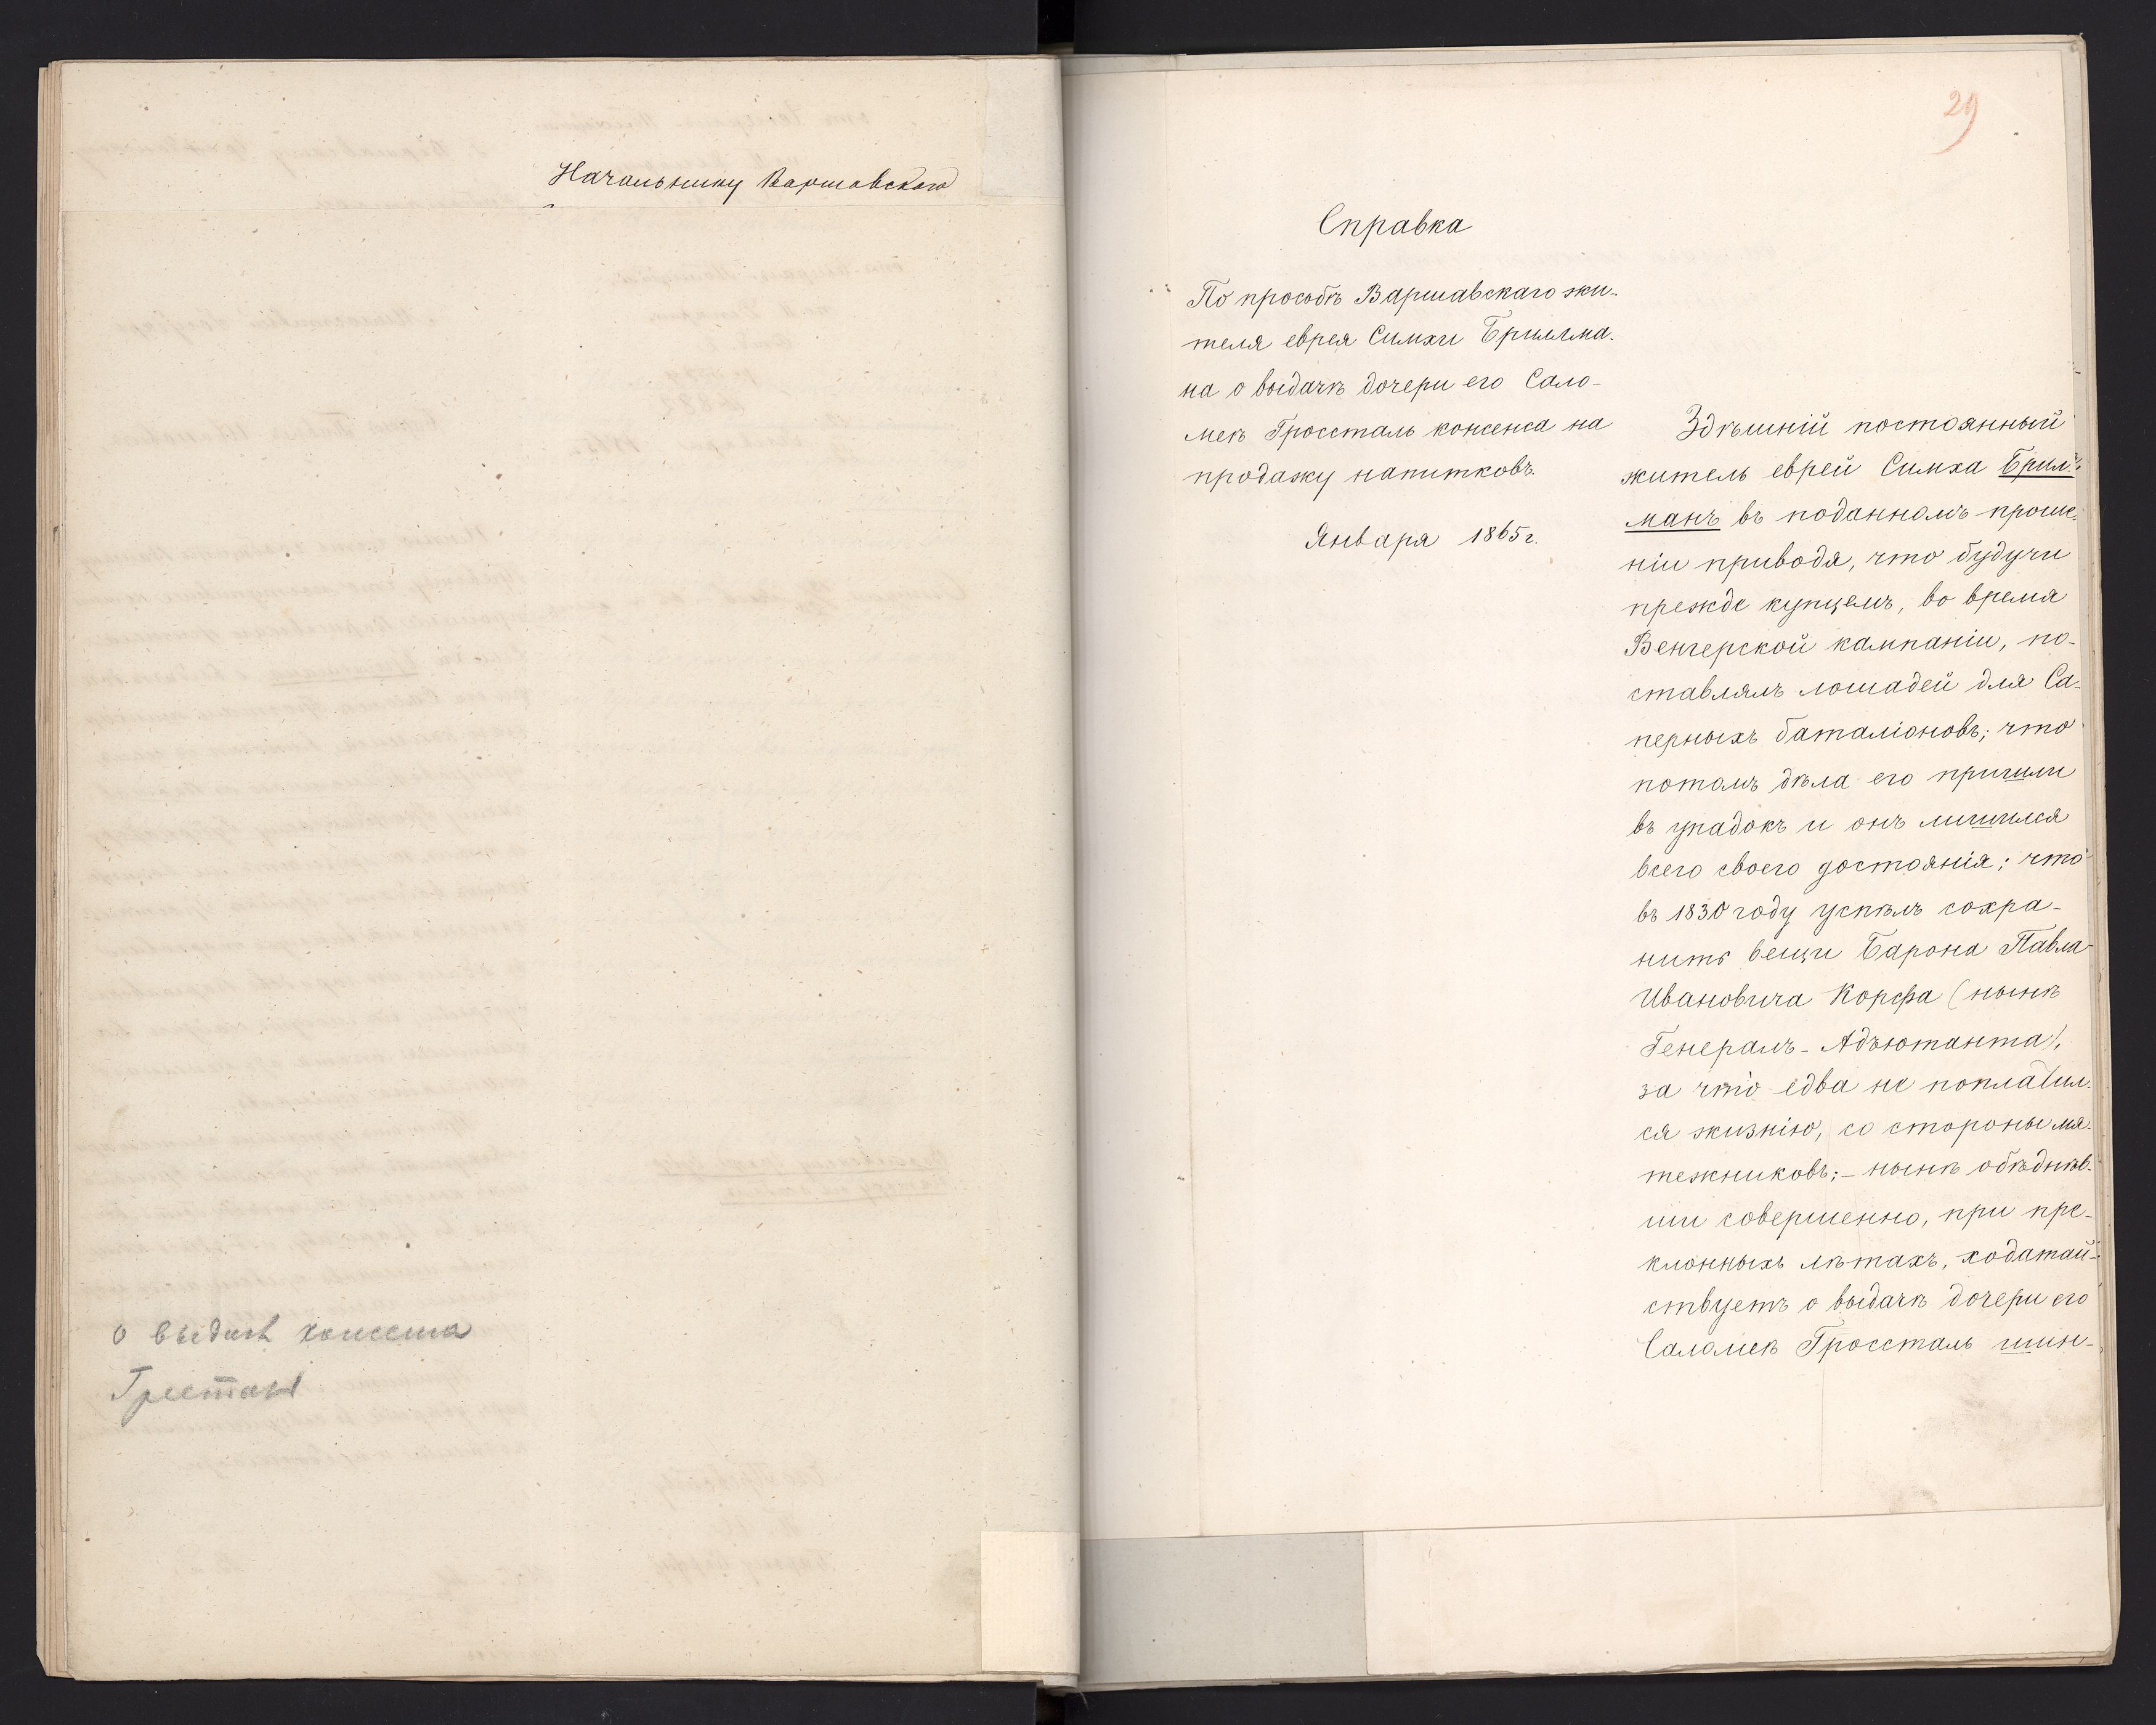 Начальнику Варшавскаго
о выдачѣ консенса
29
Справка
По просьбѣ Варшавскаго жи-
теля еврея Симхи Брилма-
на о выдачѣ дочери его Сало-
меѣ Гроссталь консенса на
продажу напитковъ.
Января 1865 г.
Здѣшній постоянный
житель еврей Симха Брил-
манъ въ поданномъ проше-
ніи приводя, что будучи
прежде купцемъ, во время
Венгерской кампаніи, по-
ставлялъ лошадей для Са-
перныхъ баталіоновъ; что
потомъ дѣла его пришли
въ упадокъ и онъ лишился
всего своего достоянія; что
въ 1830 году успѣлъ сохра-
нить вещи Барона Павла
Ивановича Корфа (нынѣ
Генералъ-Адъютанта),
за что едва не поплатил-
ся жизнію, со стороны мя-
тежниковъ; – нынѣ обѣднѣв-
ши совершенно, при пре-
клонныхъ лѣтахъ, ходатай-
ствуетъ о выдачѣ дочери его
Саломеѣ Гроссталь шин-